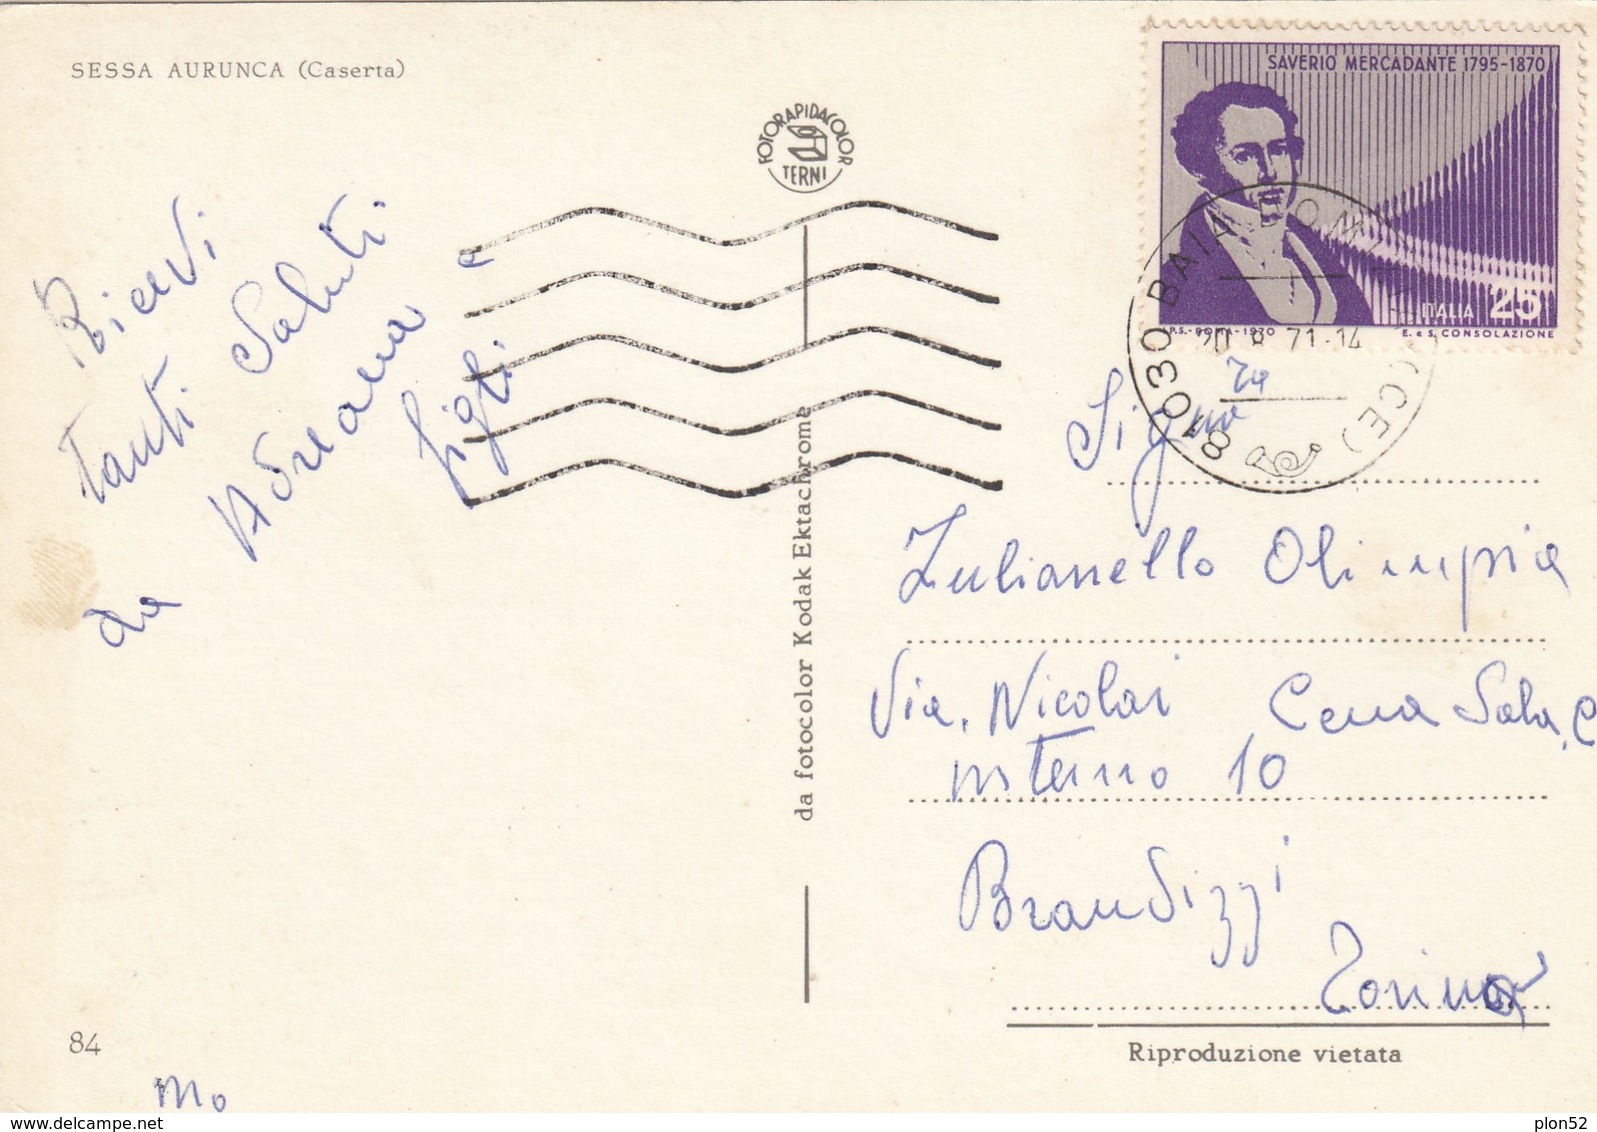 SESSA AURUNCA (Caserta)
FOTORAPIDACOLOR
TERNI
SAVERIO MERCADANTE 1795-1870
ITALIA 25
I.P.S.-ROMA-1970 E. e S. CONSOLAZIONE
81030 BAIA DOMI (CE)
71-14
Ricevi
Tanti Saluti
da Adreana e
figli
da fotocolor Kodak Ektachrome
Sigra
Zulianello Olimpia
Via. Nicolai
interno 10
Brandizzi
Torino
84
Mo
Riproduzione vietata
delcampe.net
plon52